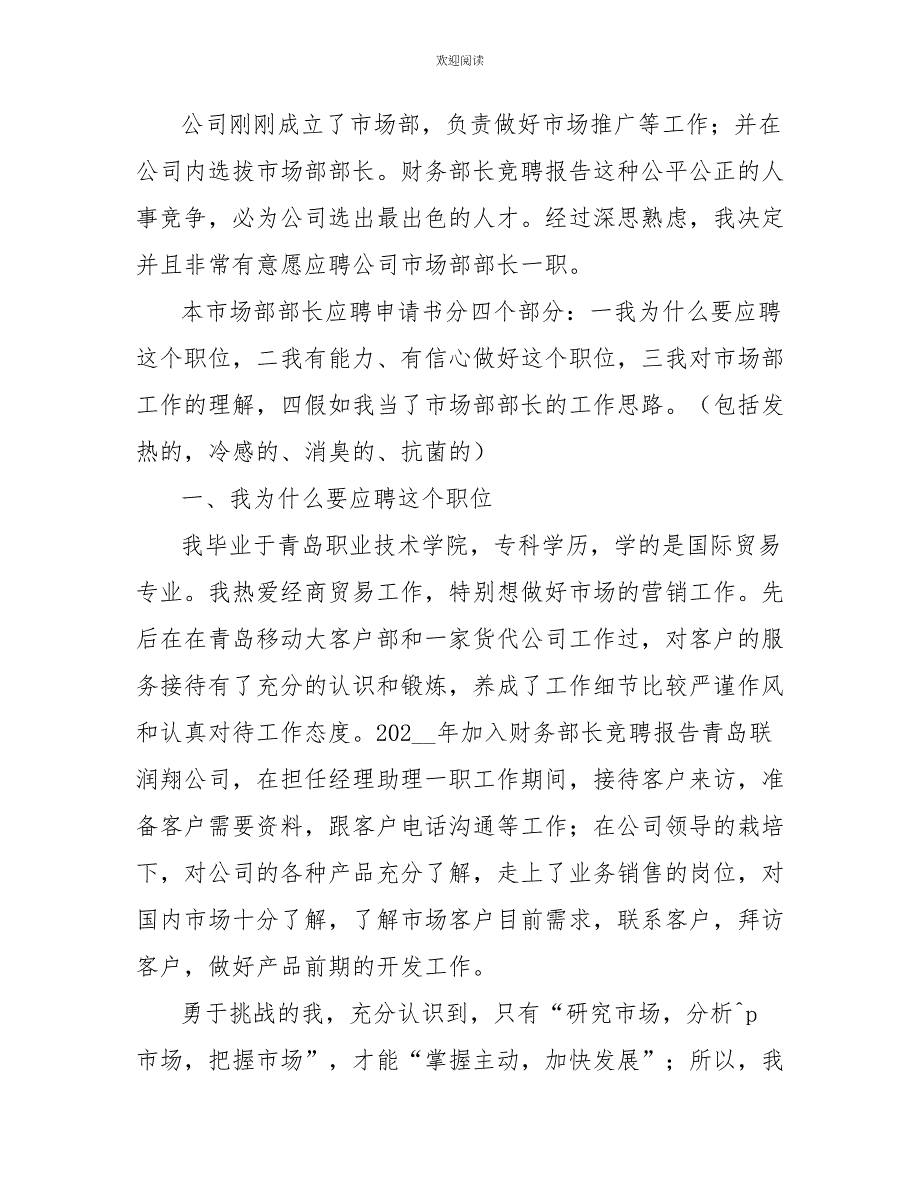 欢迎阅读
公司刚刚成立了市场部，负责做好市场推广等工作；并在
公司内选拔市场部部长。财务部长竞聘报告这种公平公正的人
事竞争，必为公司选出最出色的人才。经过深思熟虑，我决定
并且非常有意愿应聘公司市场部部长一职。
本市场部部长应聘申请书分四个部分：一我为什么要应聘
这个职位，二我有能力、有信心做好这个职位，三我对市场部
工作的理解，四假如我当了市场部部长的工作思路。（包括发
热的，冷感的、消臭的、抗菌的）
一、我为什么要应聘这个职位
我毕业于青岛职业技术学院，专科学历，学的是国际贸易
专业。我热爱经商贸易工作，特别想做好市场的营销工作。先
后在在青岛移动大客户部和一家货代公司工作过，对客户的服
务接待有了充分的认识和锻炼，养成了工作细节比较严谨作风
和认真对待工作态度。202__年加入财务部长竞聘报告青岛联
润翔公司，在担任经理助理一职工作期间，接待客户来访，准
备客户需要资料，跟客户电话沟通等工作；在公司领导的栽培
下，对公司的各种产品充分了解，走上了业务销售的岗位，对
国内市场十分了解，了解市场客户目前需求，联系客户，拜访
客户，做好产品前期的开发工作。
勇于挑战的我，充分认识到，只有“研究市场，分析^p
市场，把握市场”，才能“掌握主动，加快发展”；所以，我